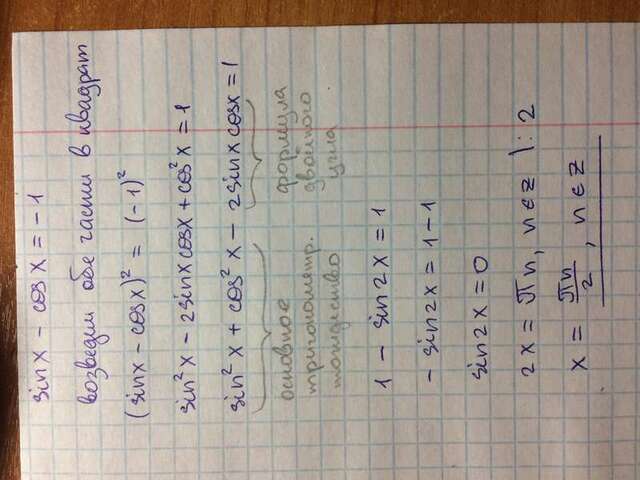 sinx - cosx = -1
возведем обе части в квадрат
(sinx - cosx)² = (-1)²
sin²x - 2sinxcosx + cos²x = 1
sin²x + cos²x - 2sinxcosx = 1
основное формула
тригонометр. двойного
тождество угла
1 - sin2x = 1
- sin2x = 1-1
sin2x = 0
2x = πn, n∈z \: 2
x = πn/2, n∈Z